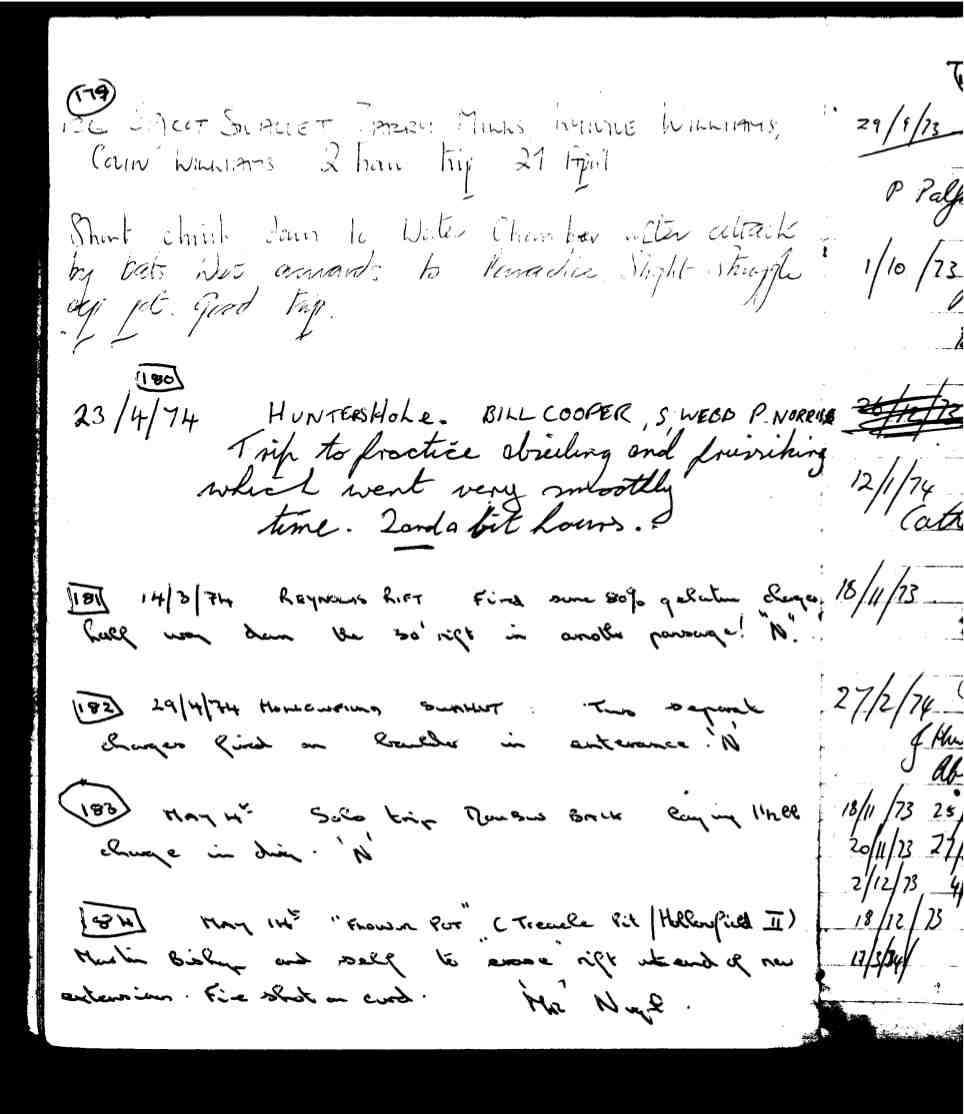 179
SWALLET BARRY MILLS, WILLIAMS,
COLIN WILLIAMS 2 hour trip 21 April
Short climb down to Water Chamber after attack
by bats to Paradise Slight struggle
up pot. Good trip.
180
23/4/74 HUNTERS HoLe. BILL COOPER, S, WEBB P. NORRISE
Trip to practice abseiling and prussiking
which went very smoothly
time. 2 and a bit hours.
181 14/3/74 REYNOLDS RIFT Fired some 80% gelatine charges,
half way down the 30' rift in another passage! "N".
182 29/4/74 SWALLET : Two separate
charges fired on boulder in enterance. 'N'
183 MAY 4th Solo trip BACK laying
charge in dig. 'N'
184 MAY 14th "FLOWER POT" (Treacle Pit / Hollowfield II)
Martin Bishop and self to rift at end of new
extension. Fire shot on cord. 'Mr' Nigel.
29/9/73
P Palf
1/10/73
12/1/74
Cath
18/11/73
27/2/74
J Hu
18/11/73 25/
20/11/73 27/
2/12/73 4/
18/12/73
17/3/74